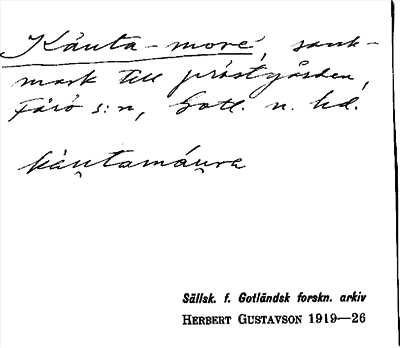 Kånta-more, sank-
mark till prästgården,
Fårö s:n, Gotl. n. hd.
kåu̯ntamáu̯ra
Sällsk. f. Gotländsk forskn. arkiv
HERBERT GUSTAVSON 1919—26